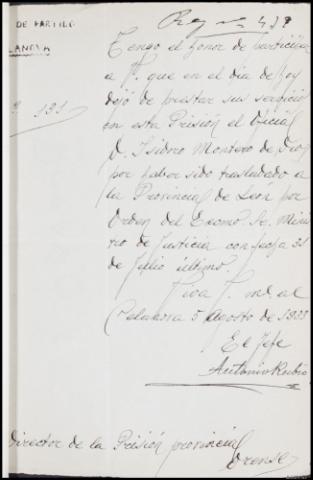 Reg n 438
DE PARTIDO
LANOVA
131
Tengo el honor de participar
a V. que en el dia de hoy
dejó de prestar sus servicios
en esta Prisión el Oficial
D. Isidoro Montero de Dios
por haber sido trasladado a
la Provincial de León por
Orden del Excmo Sr. Minis
tro de Justicia con fecha 31
de Julio último.
Viva V. m. a.
Celanova 5 Agosto de 1933
El Jefe
Antonio Rubio
Director de la Prisión provincial
Orense